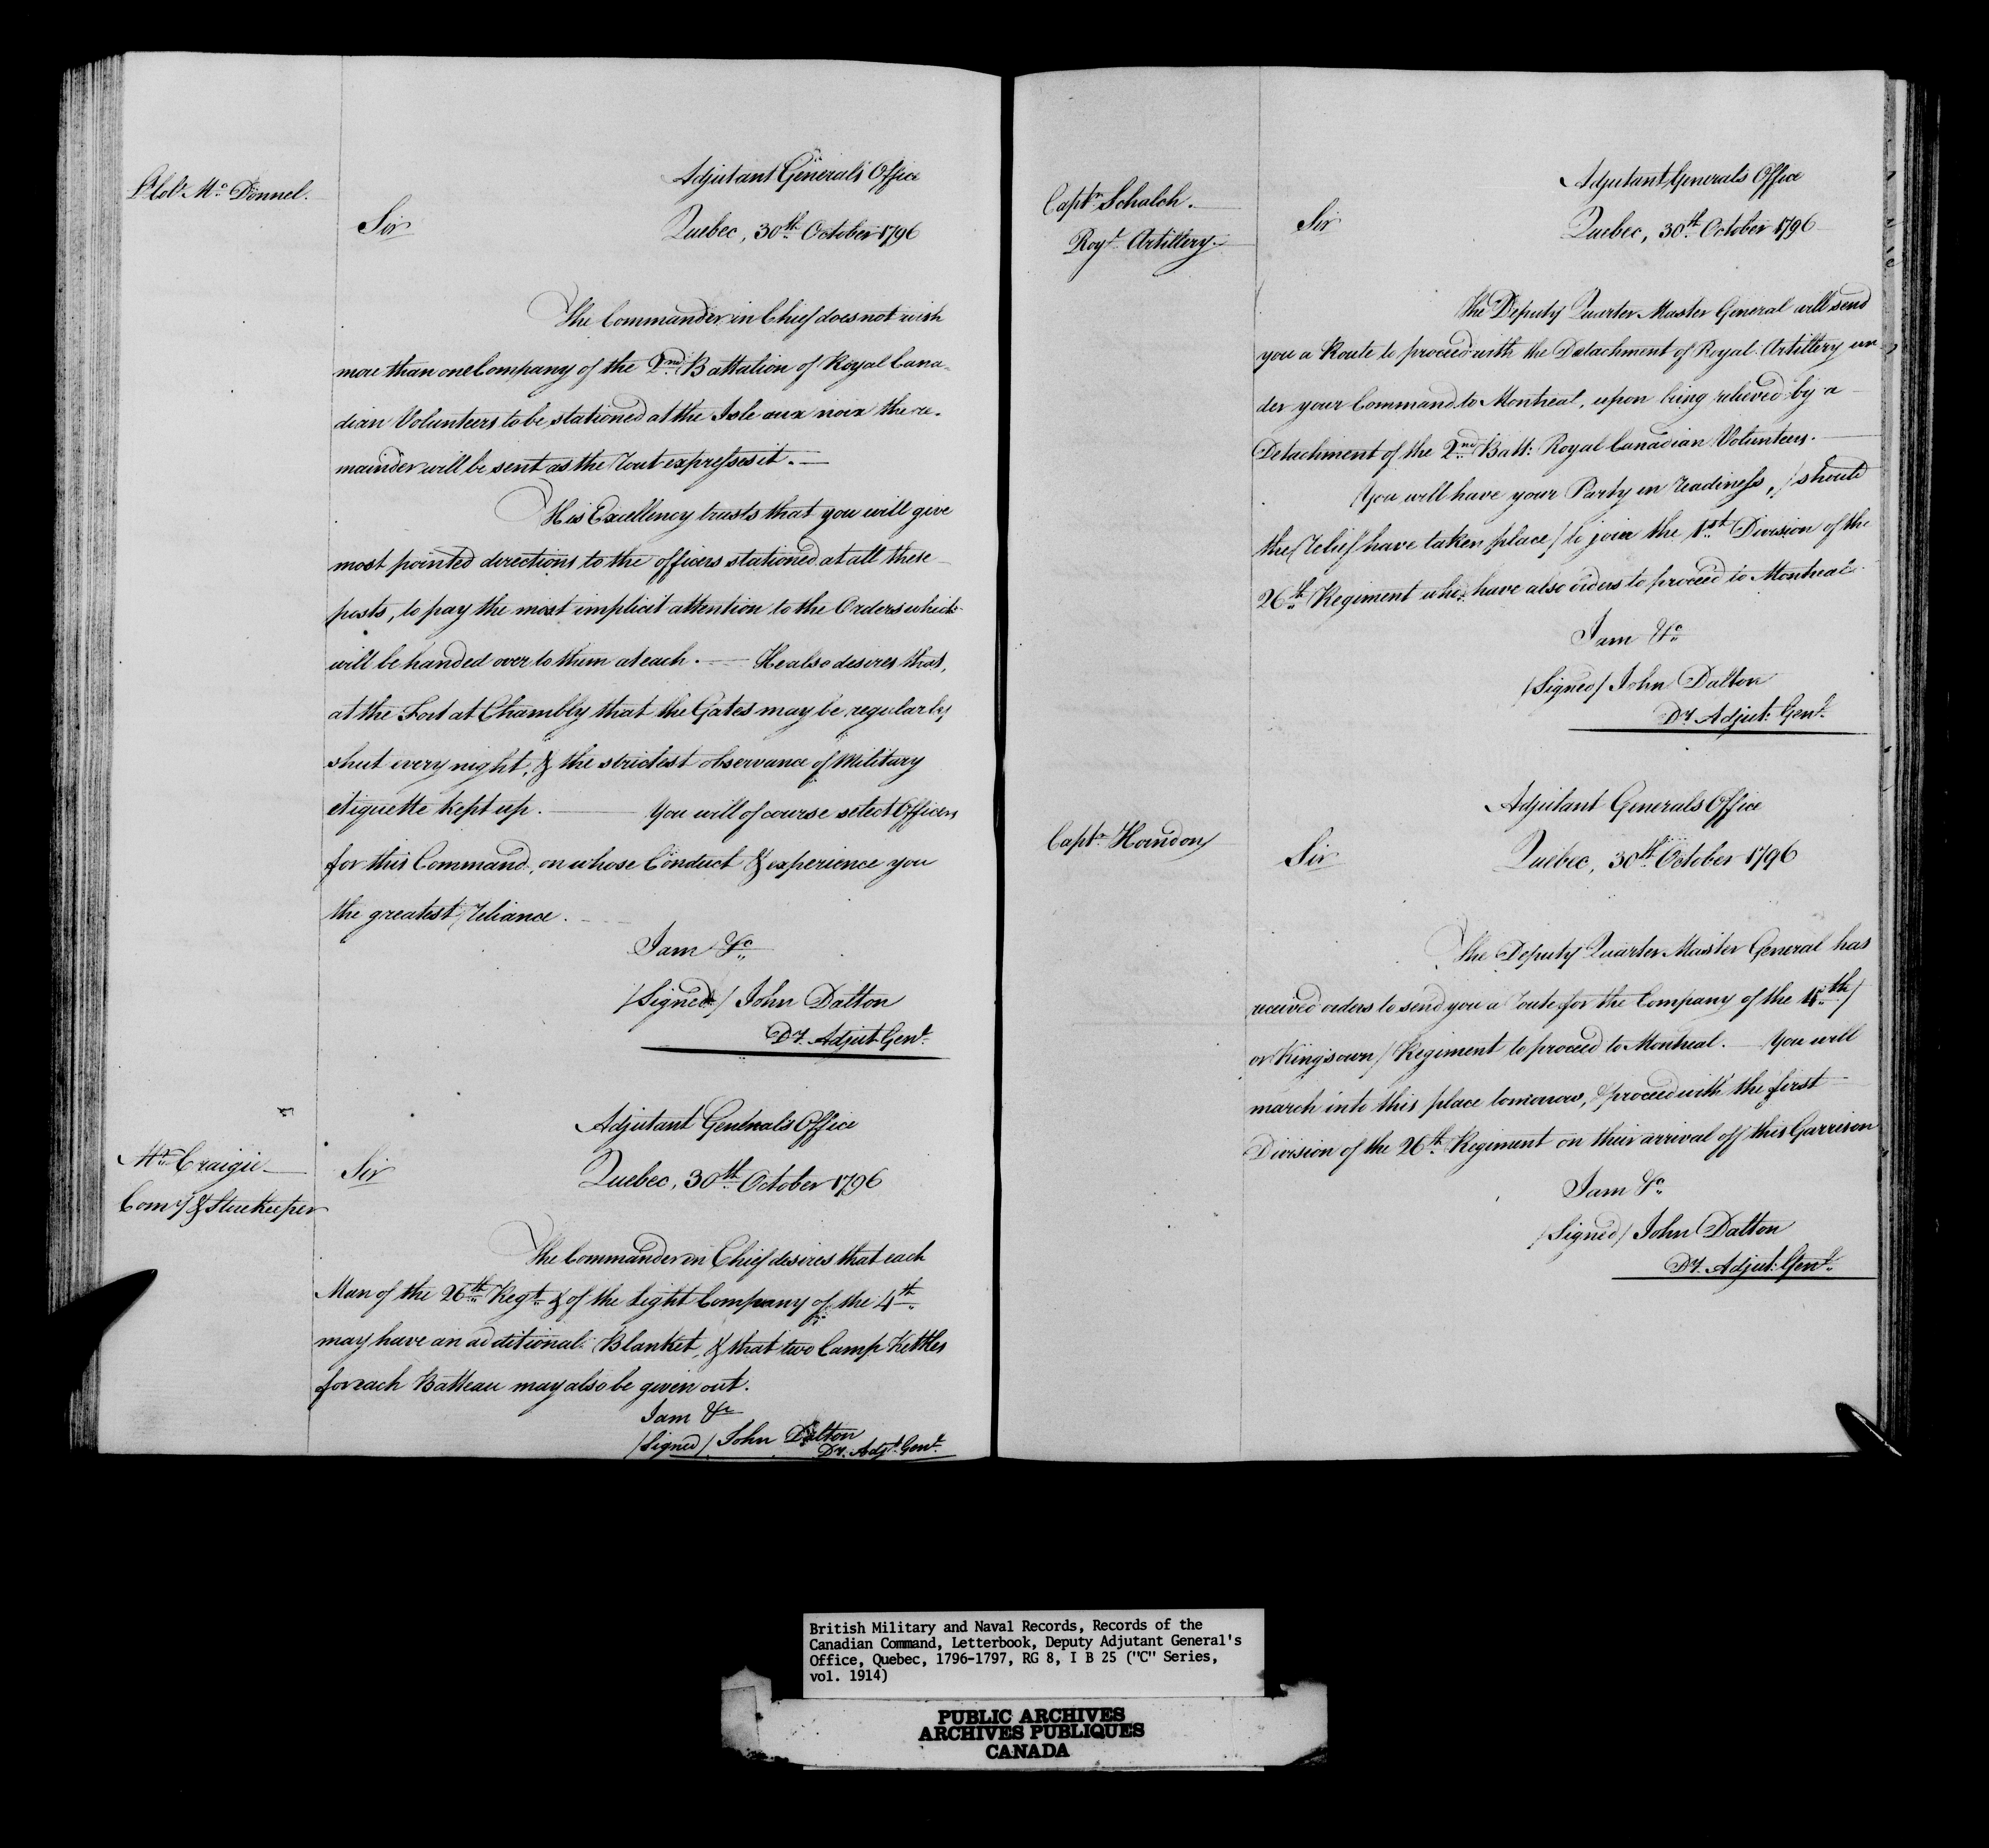 Lt Colo Mc Donnel.
Adjutant Generals Office
Sir
Quebec, 30th October 1796
The Commander in Chief does not wish
more than one Company of the 2nd Battalion of Royal Cana-
dian Volunteers to be stationed at the Isle aux noix the re-
mainder will be sent as the Rout expresses it.
His Excellency trusts that you will give
most pointed directions to the officers stationed at all these
posts, to pay the most implicit attention to the Orders which
will be handed over to them at each. — He also desires that,
at the Fort at Chambly that the Gates may be regularly
shut every night, & the strictest observance of Military
etiquette kept up. — You will of course select Officers
for this Command, on whose Conduct & experience you
the greatest reliance.
I am &c
/Signed/ John Dalton
Dy. Adjut Genl.
Adjutant Generals Office
Mr. Craigie
Sir
Quebec, 30th October 1796
Comy & Storekeeper
The Commander in Chief desires that each
Man of the 26th Regt. & of the Light Company of the 4th
may have an additional Blanket, & that two Camp Kettles
for each Batteau may also be given out.
I am &c
/Signed/ John Dalton
Dy. Adjt. Genl.
Captn Schalch.
Royl Artillery.
Adjutant Generals Office
Sir
Quebec, 30th October 1796
The Deputy Quarter Master General will send
you a Route to proceed with the Detachment of Royal Artillery un
der your Command to Montreal, upon being relieved by a
Detachment of the 2nd Batt: Royal Canadian Volunteers.
You will have your Party in readiness, /should
the relief have taken place/ to join the 1st Division of the
26th Regiment who have also orders to proceed to Montreal.
I am &c
/Signed/ John Dalton
Dy. Adjut: Genl.
Adjutant Generals Office
Captn
Sir
Quebec, 30th October 1796
The Deputy Quarter Master General has
received orders to send you a route for the Company of the 4th/
or Kings own/ Regiment to proceed to Montreal. — You will
march into this place tomorrow, & proceed with the first
Division of the 26th Regiment on their arrival off this Garrison
I am &c
/Signed/ John Dalton
Dy. Adjut: Genl.
British Military and Naval Records, Records of the
Canadian Command, Letterbook, Deputy Adjutant General's
Office, Quebec, 1796-1797, RG 8, I B 25 ("C" Series,
vol. 1914)
PUBLIC ARCHIVES
ARCHIVES PUBLIQUES
CANADA